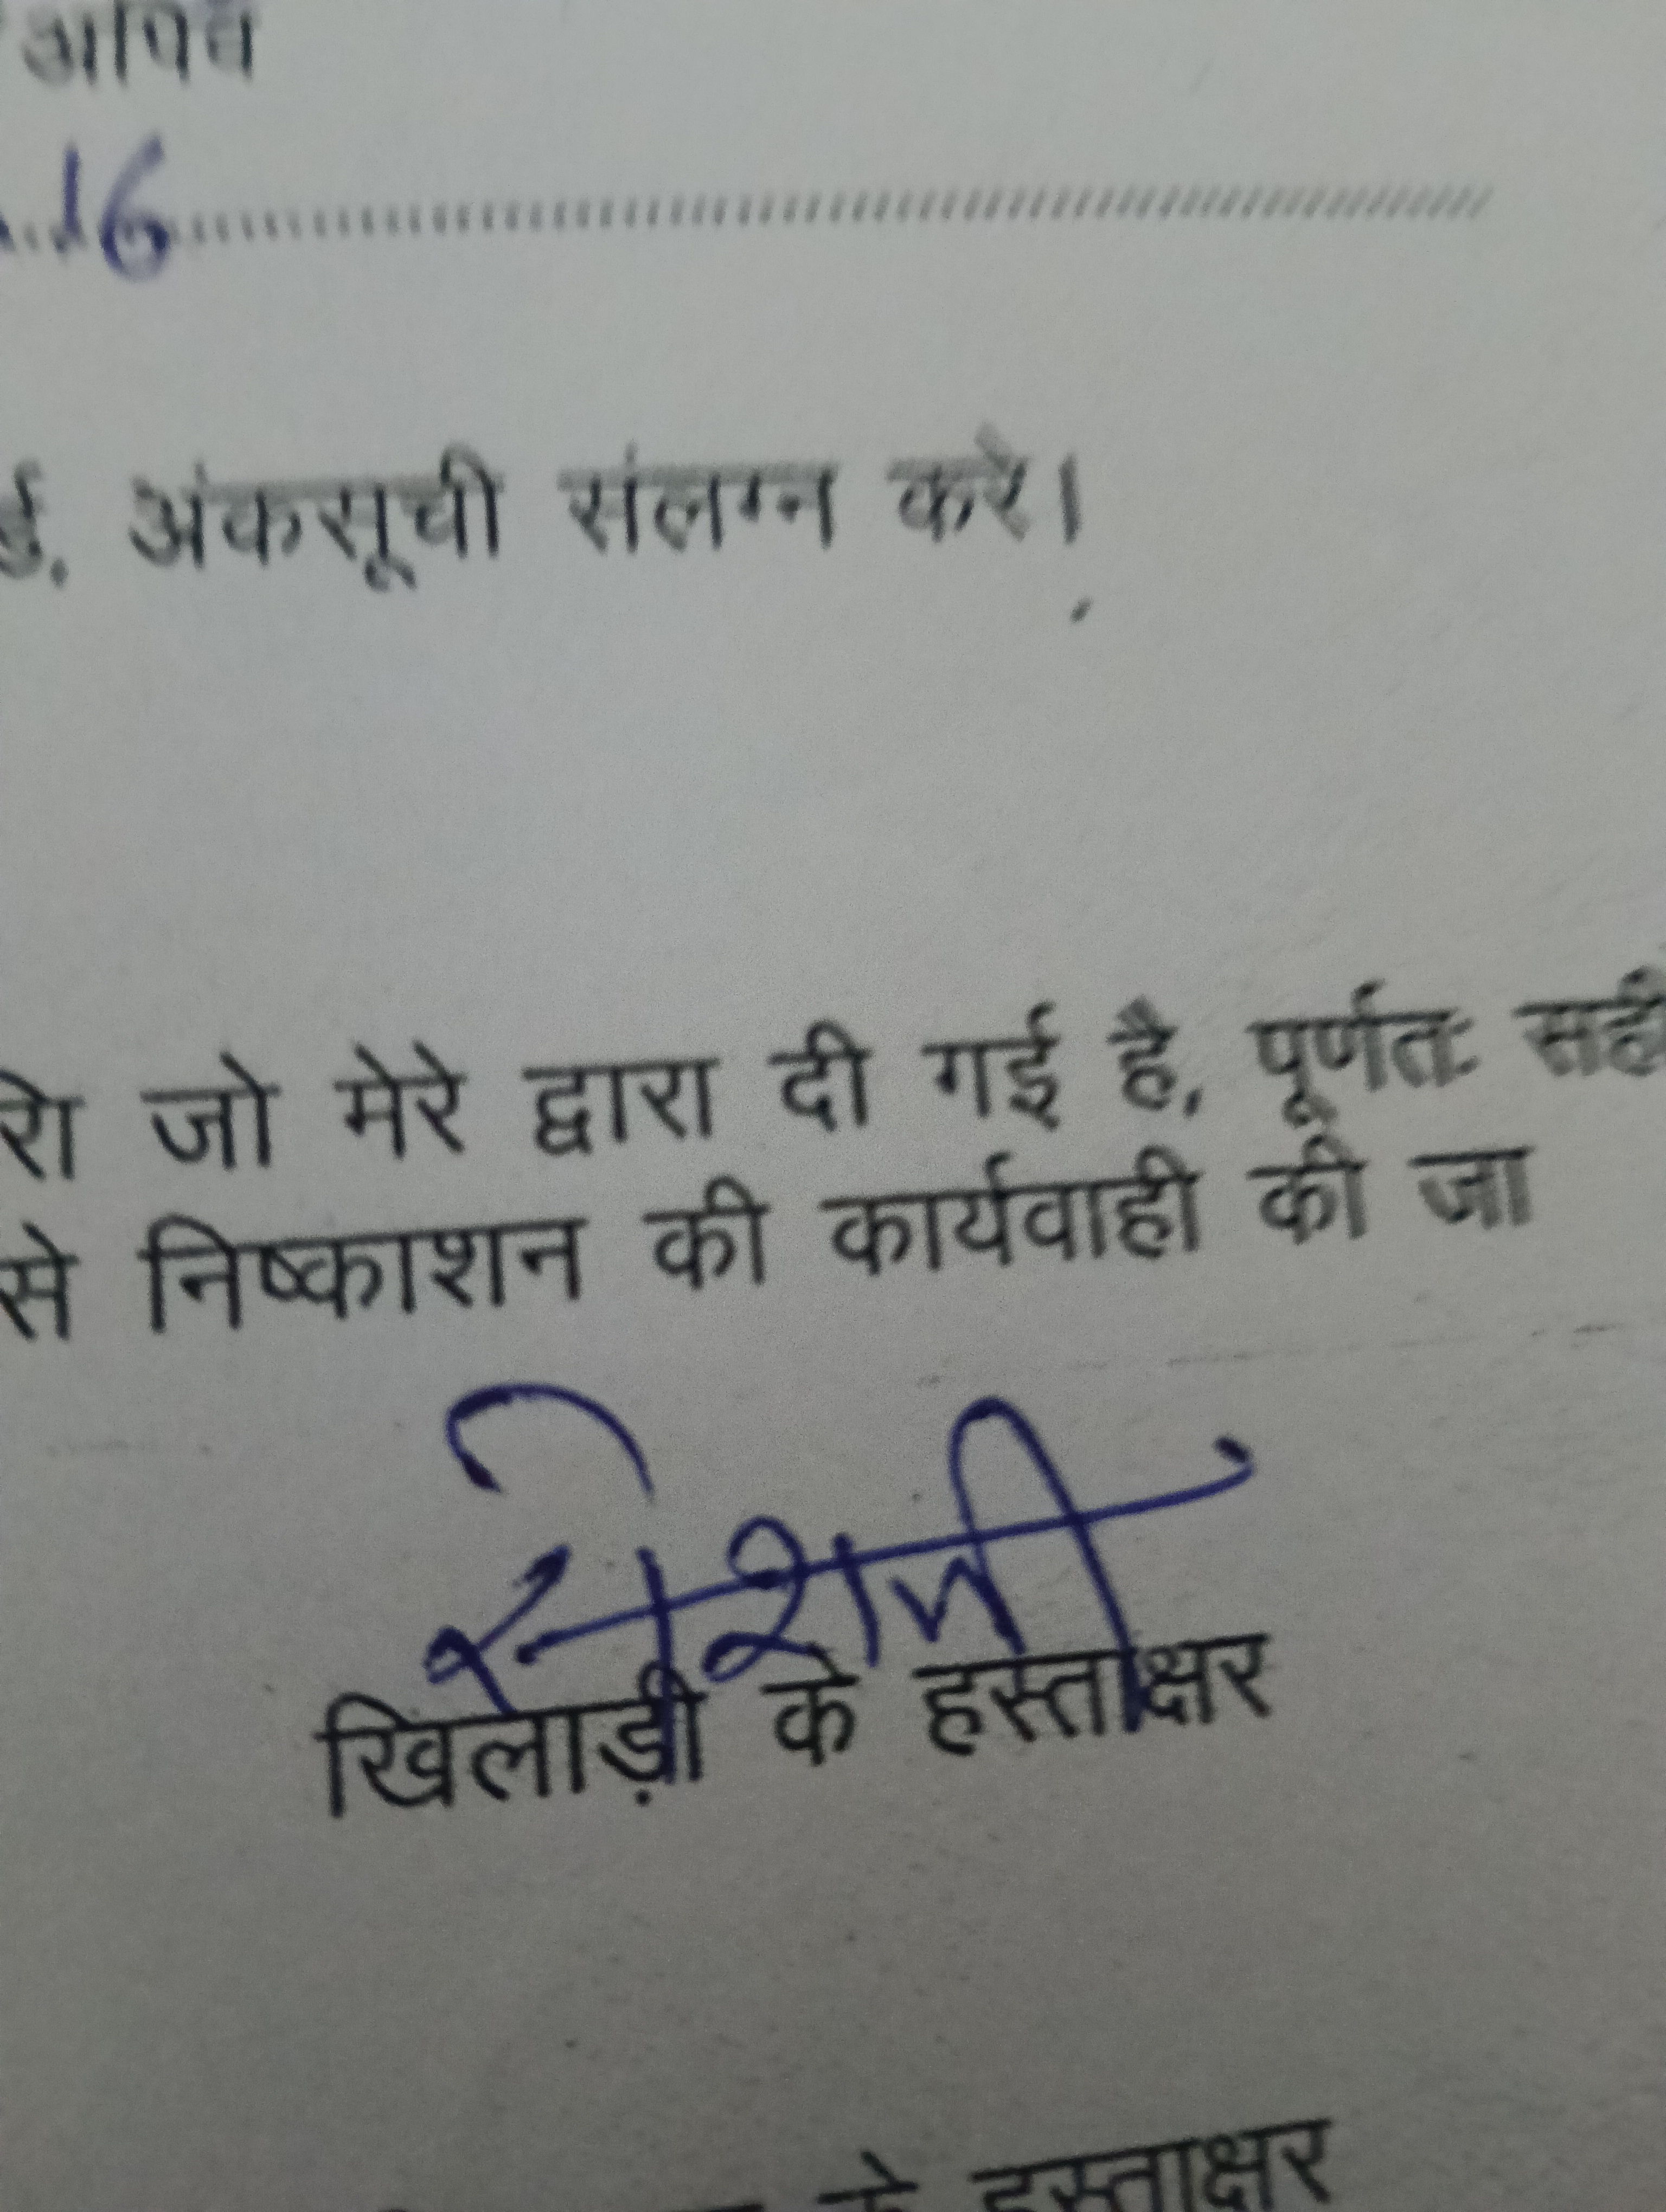 अवधि
16
अंकसूची संलग्न करे।
जो मेरे द्वारा दी गई है, पूर्णतः सही
से निष्काशन की कार्यवाही की जा
रोशनी
खिलाड़ी के हस्ताक्षर
के हस्ताक्षर